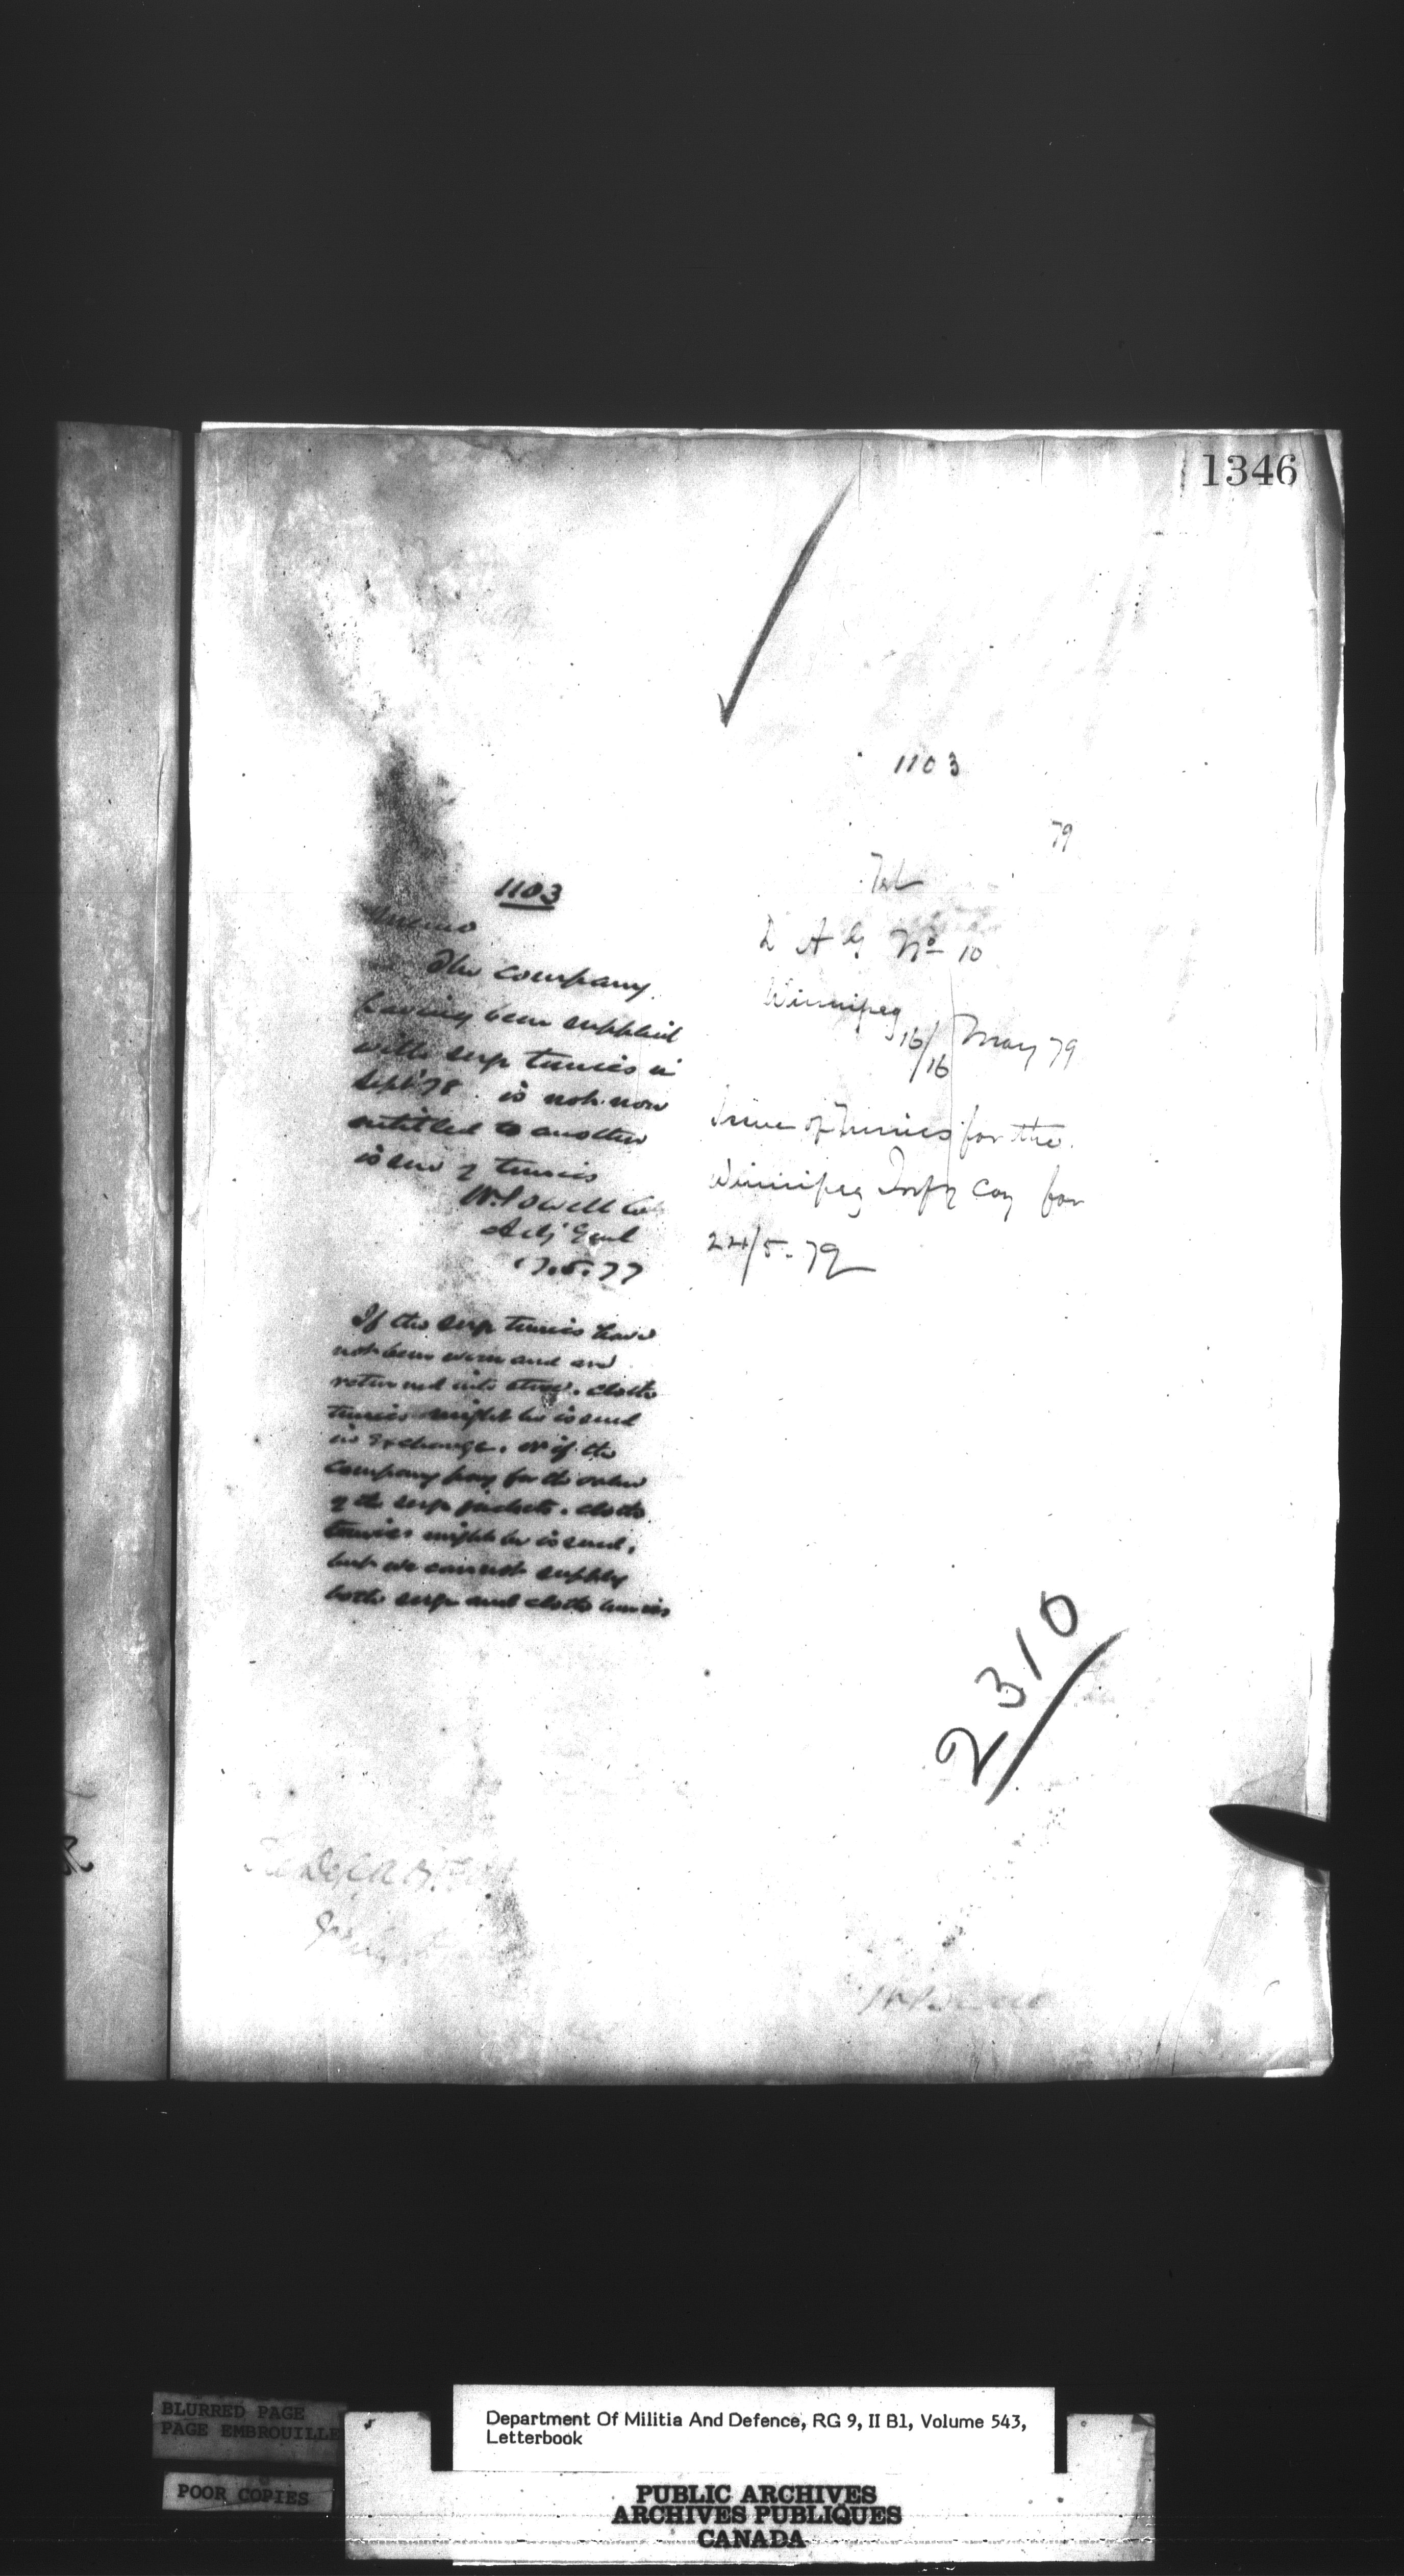 1346
1103
Memo
The company
having been supplied
with serge tunics in
Sept '78. is not now
entitled to another
issue of tunics
W. Powell Col
Adj Genl
17.5.79
If the serge tunics have
not been worn and are
returned into store. cloth
tunics might be issued
in exchange. or if the
company pay for the value
of the serge jackets. cloth
tunics might be issued.
but we cannot supply
both serge and cloth tunics
1103
79
Tel
D A G No 10
Winnipeg
16/16 May 79
Issue of Tunics for the
Winnipeg Infy Coy for
24/5. 79
2310
BLURRED PAGE
PAGE EMBROUILLE
POOR COPIES
Department Of Militia And Defence, RG 9, II B1, Volume 543,
Letterbook
PUBLIC ARCHIVES
ARCHIVES PUBLIQUES
CANADA